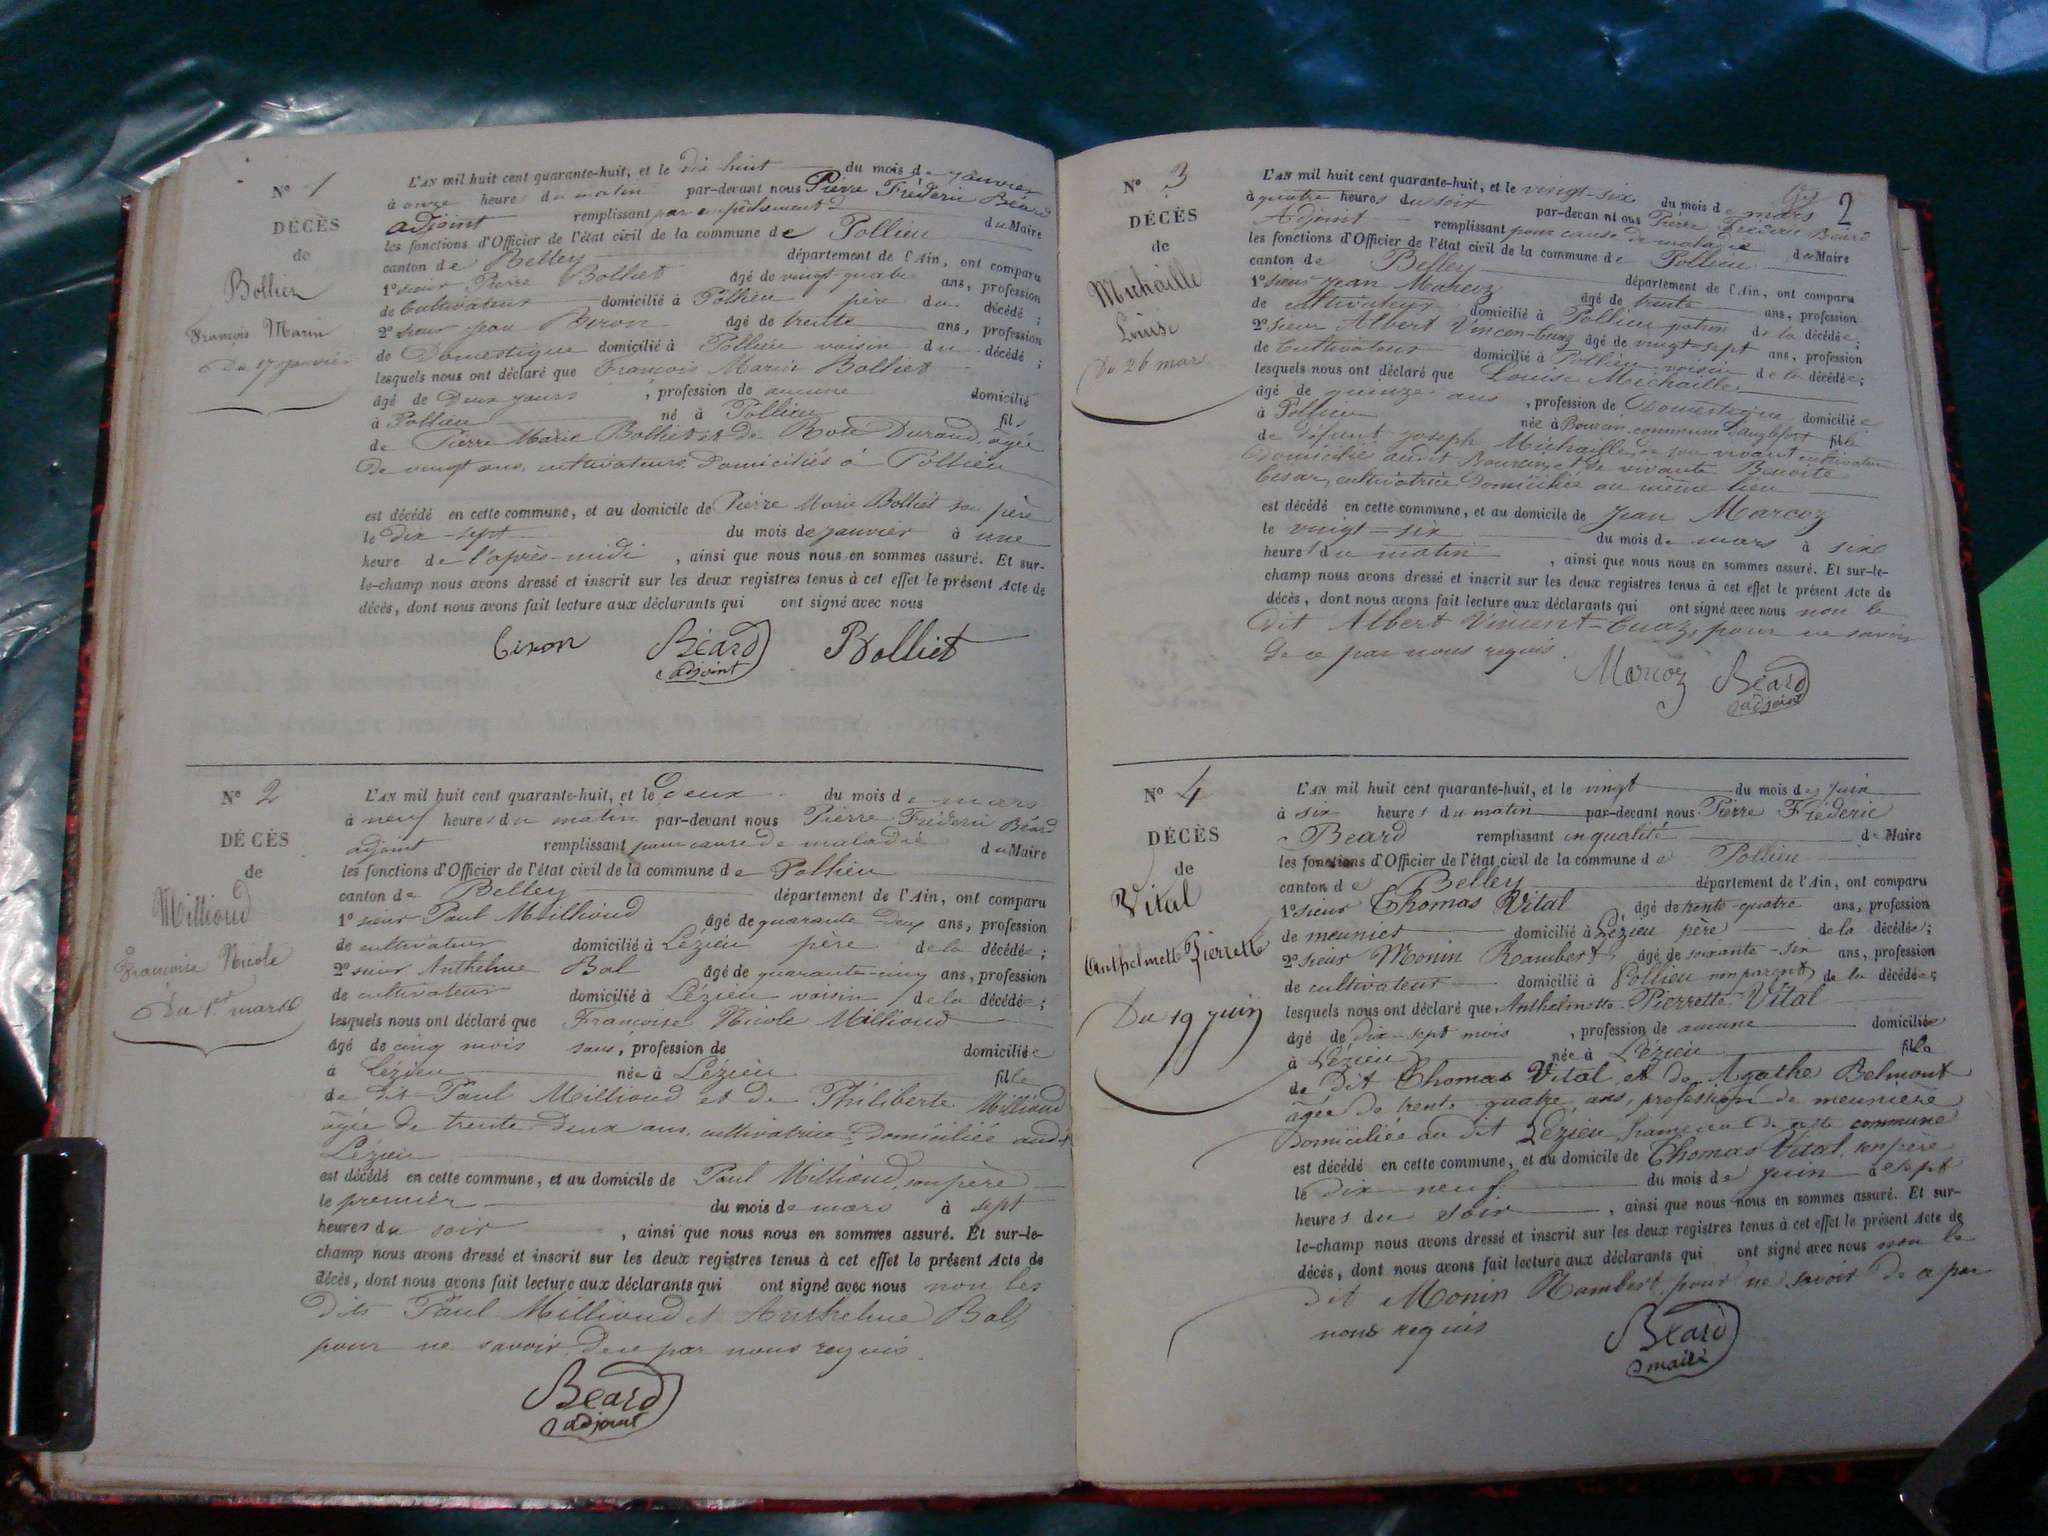 N° 1
DÉCÈS
de
Bolliet
François Marin
Du 17 janvier
L'AN mil huit cent quarante-huit, et le dix huit du mois de janvier
à onze heures du matin par-devant nous Pierre Fréderic Béard
adjoint remplissant par empêchement du Maire
les fonctions d'Officier de l'état civil de la commune de Pollieu
canton de Belley département de l'Ain, ont comparu
1° sieur Pierre Bolliet âgé de vingt-quatre ans, profession
de Cultivateur domicilié à Pollieu père du décédé ;
2° sieur jean âgé de trente ans, profession
de Domestique domicilié à Pollieu voisin du décédé ;
lesquels nous ont déclaré que François Marin Bolliet
âgé de Deux jours , profession de aucune domicilié
à Pollieu né à Pollieu fils
de Pierre Marie Bolliet et de Durand, âgée
De vingt ans, cultivateurs, Domiciliés à Pollieu
est décédé en cette commune, et au domicile de Pierre Marie Bolliet son père
le dix-sept du mois de janvier à une
heure de l'après-midi , ainsi que nous nous en sommes assuré. Et sur-
le-champ nous avons dressé et inscrit sur les deux registres tenus à cet effet le présent Acte de
décès, dont nous avons fait lecture aux déclarants qui ont signé avec nous
Béard Bolliet
adjoint
N° 2
DÉCÈS
de
Millioud
Françoise Nicole
Du 1er mars
L'AN mil huit cent quarante-huit, et le deux du mois de mars
à neuf heures du matin par-devant nous Pierre Fréderic Béard
adjoint remplissant pour cause de maladie du Maire
les fonctions d'Officier de l'état civil de la commune de Pollieu
canton de Belley département de l'Ain, ont comparu
1° sieur Paul Millioud âgé de quarante Deux ans, profession
de cultivateur domicilié à Lézieu père de la décédée ;
2° sieur Anthelme Bal âgé de quarante-cinq ans, profession
de cultivateur domicilié à Lézieu voisin de la décédée ;
lesquels nous ont déclaré que Françoise Nicole Millioud
âgé de cinq mois sans, profession de domiciliée
à Lézieu née à Lézieu fille
de dit Paul Millioud et de Philiberte Millioud
âgée de trente-Deux ans, cultivatrice, Domiciliée audit
Lézieu
est décédé en cette commune, et au domicile de Paul Millioud, son père
le premier du mois de mars à sept
heures du soir , ainsi que nous nous en sommes assuré. Et sur-le-
champ nous avons dressé et inscrit sur les deux registres tenus à cet effet le présent Acte de
décès, dont nous avons fait lecture aux déclarants qui ont signé avec nous non les
dits Paul Millioud et Anthelme Bal,
pour ne savoir, de ce par nous requis.
Béard
adjoint
2
N° 3
DÉCÈS
de
Michaille
Louise
Du 26 mars
L'AN mil huit cent quarante-huit, et le vingt-six du mois de mars
à quatre heures du soir par-devant nous Pierre Fréderic Béard
Adjoint remplissant pour cause de maladie du Maire
les fonctions d'Officier de l'état civil de la commune de Pollieu
canton de Belley département de l'Ain, ont comparu
1° sieur Jean Marcoz âgé de trente ans, profession
de cultivateur domicilié à Pollieu patron de la décédée ;
2° sieur Albert Vincen-Cuaz âgé de vingt-sept ans, profession
de Cultivateur domicilié à Pollieu voisin de la décédée ;
lesquels nous ont déclaré que Louise Michaille
âgé de quinze ans , profession de Domestique domiciliée
à Pollieu née à commune d'anglefort fille
de défunt joseph Michaille, de son vivant cultivateur
domicilié audit et de vivante Benoite
Cesar, cultivatrice Domiciliée au même lieu
est décédé en cette commune, et au domicile de Jean Marcoz
le vingt-six du mois de mars à sixe
heures du matin , ainsi que nous nous en sommes assuré. Et sur-le-
champ nous avons dressé et inscrit sur les deux registres tenus à cet effet le présent Acte de
décès, dont nous avons fait lecture aux déclarants qui ont signé avec nous non le
dit Albert Vincent-Cuaz, pour ne savoir
de ce par nous requis.
Marcoz Béard
adjoint
N° 4
DÉCÈS
de
Vital
Anthelmette Pierrette
Du 19 juin
L'AN mil huit cent quarante-huit, et le vingt du mois de juin
à six heures du matin par-devant nous Pierre Fréderic
Béard remplissant en qualité de Maire
les fonctions d'Officier de l'état civil de la commune de Pollieu
canton de Belley département de l'Ain, ont comparu
1° sieur Thomas Vital âgé de trente-quatre ans, profession
de meunier domicilié à Lézieu père de la décédée ;
2° sieur Monin Rambert, âgé de soixante-six ans, profession
de cultivateur domicilié à Pollieu non parent de la décédée ;
lesquels nous ont déclaré que Anthelmette Pierrette Vital
âgé de dix-sept mois , profession de aucune domiciliée
à Lézieu née à Lézieu fille
de Dit Thomas Vital, et de Agathe Belmont
âgée de trente quatre ans, profession de meunière
domiciliée au dit Lézieu, hameau de cette commune
est décédé en cette commune, et au domicile de Thomas Vital, son père
le dix neuf du mois de juin à sept
heures du soir , ainsi que nous nous en sommes assuré. Et sur-
le-champ nous avons dressé et inscrit sur les deux registres tenus à cet effet le présent Acte de
décès, dont nous avons fait lecture aux déclarants qui ont signé avec nous non le
dit Monin Rambert, pour ne savoir de ce par
nous requis
Béard
maire